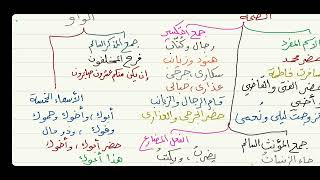 الضمة
الاسم المفرد
حضر محمد
سافرت فاطمة
حضر الفتى والقاضي
تزوجت ليلى ونُعمى
جمع المؤنث السالم
جاء الزينبات
جمع التكسير
رجال وكتّاب
هنود وزيانب
سكارى، جرحى
قام الرجال والزيانب
حضر الجرحى والعذارى
الفعل المضارع
يضرب، ويكتب
الواو
جمع المذكر السالم
فرح المخلفون
إن يكن منكم عشرون صابرون
الأسماء الخمسة
أبوك، وأخوك وحموك
وفوك، وذو مال
حضر أبوك، وأخوك
هذا